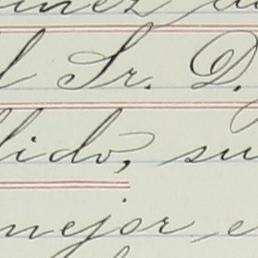 l Sr. D.
lido, su
mejor, e